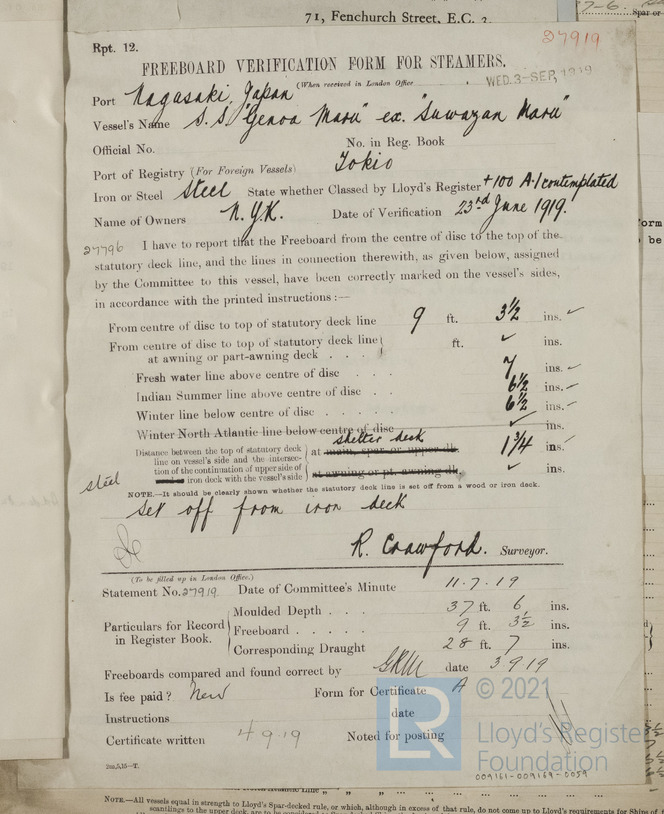 71, Fenchurch Street, E.C. 3.
27919
Rpt. 12.
FREEBOARD VERIFICATION FORM FOR STEAMERS.
(When received in London Office
WED. 3-SEP, 1919
Port Nagasaki, Japan
Vessel's Name S.S. "Genoa Maru" ex. "Suwazan Maru"
Official No. No. in Reg. Book
Port of Registry (For Foreign Vessels) Tokio
Iron or Steel Steel State whether Classed by Lloyd's Register +100 A.1 contemplated
Name of Owners N.Y.K. Date of Verification 23rd June 1919.
27796 I have to report that the Freeboard from the centre of disc to the top of the
statutory deck line, and the lines in connection therewith, as given below, assigned
by the Committee to this vessel, have been correctly marked on the vessel's sides,
in accordance with the printed instructions :—
From centre of disc to top of statutory deck line 9 ft. 3½ ins. ✓
From centre of disc to top of statutory deck line
at awning or part-awning deck . . . ft. ✓ ins.
Fresh water line above centre of disc . . . 7 ins. ✓
Indian Summer line above centre of disc . . 6½ ins. ✓
Winter line below centre of disc . . . 6½ ins. ✓
Winter North Atlantic line below centre of disc ✓ ins.
shelter deck
Distance between the top of statutory deck
line on vessel's side and the intersec-
tion of the continuation of upper side of
iron deck with the vessel's side
at main, spar or upper dk. 1¾ ins. ✓
steel
at awning or pt. awning dk. ✓ ins.
NOTE.—It should be clearly shown whether the statutory deck line is set off from a wood or iron deck.
Set off from iron deck
R. Crawford. Surveyor.
(To be filled up in London Office.)
Statement No. 27919 Date of Committee's Minute 11.7.19
Particulars for Record
in Register Book.
Moulded Depth . . . 37 ft. 6 ins.
Freeboard . . . . . 9 ft. 3½ ins.
Corresponding Draught 28 ft. 7 ins.
Freeboards compared and found correct by date 3 9 19
Is fee paid? New Form for Certificate A
Instructions date
Certificate written 4 9 19 Noted for posting
2m,5,15—T.
© 2021
LR
Lloyd's Register
Foundation
009161-009169-0059
NOTE.—All vessels equal in strength to Lloyd's Spar-decked rule, or which, although in excess of that rule, do not come up to Lloyd's requirements for Ships of
scantlings to the upper deck, are to be